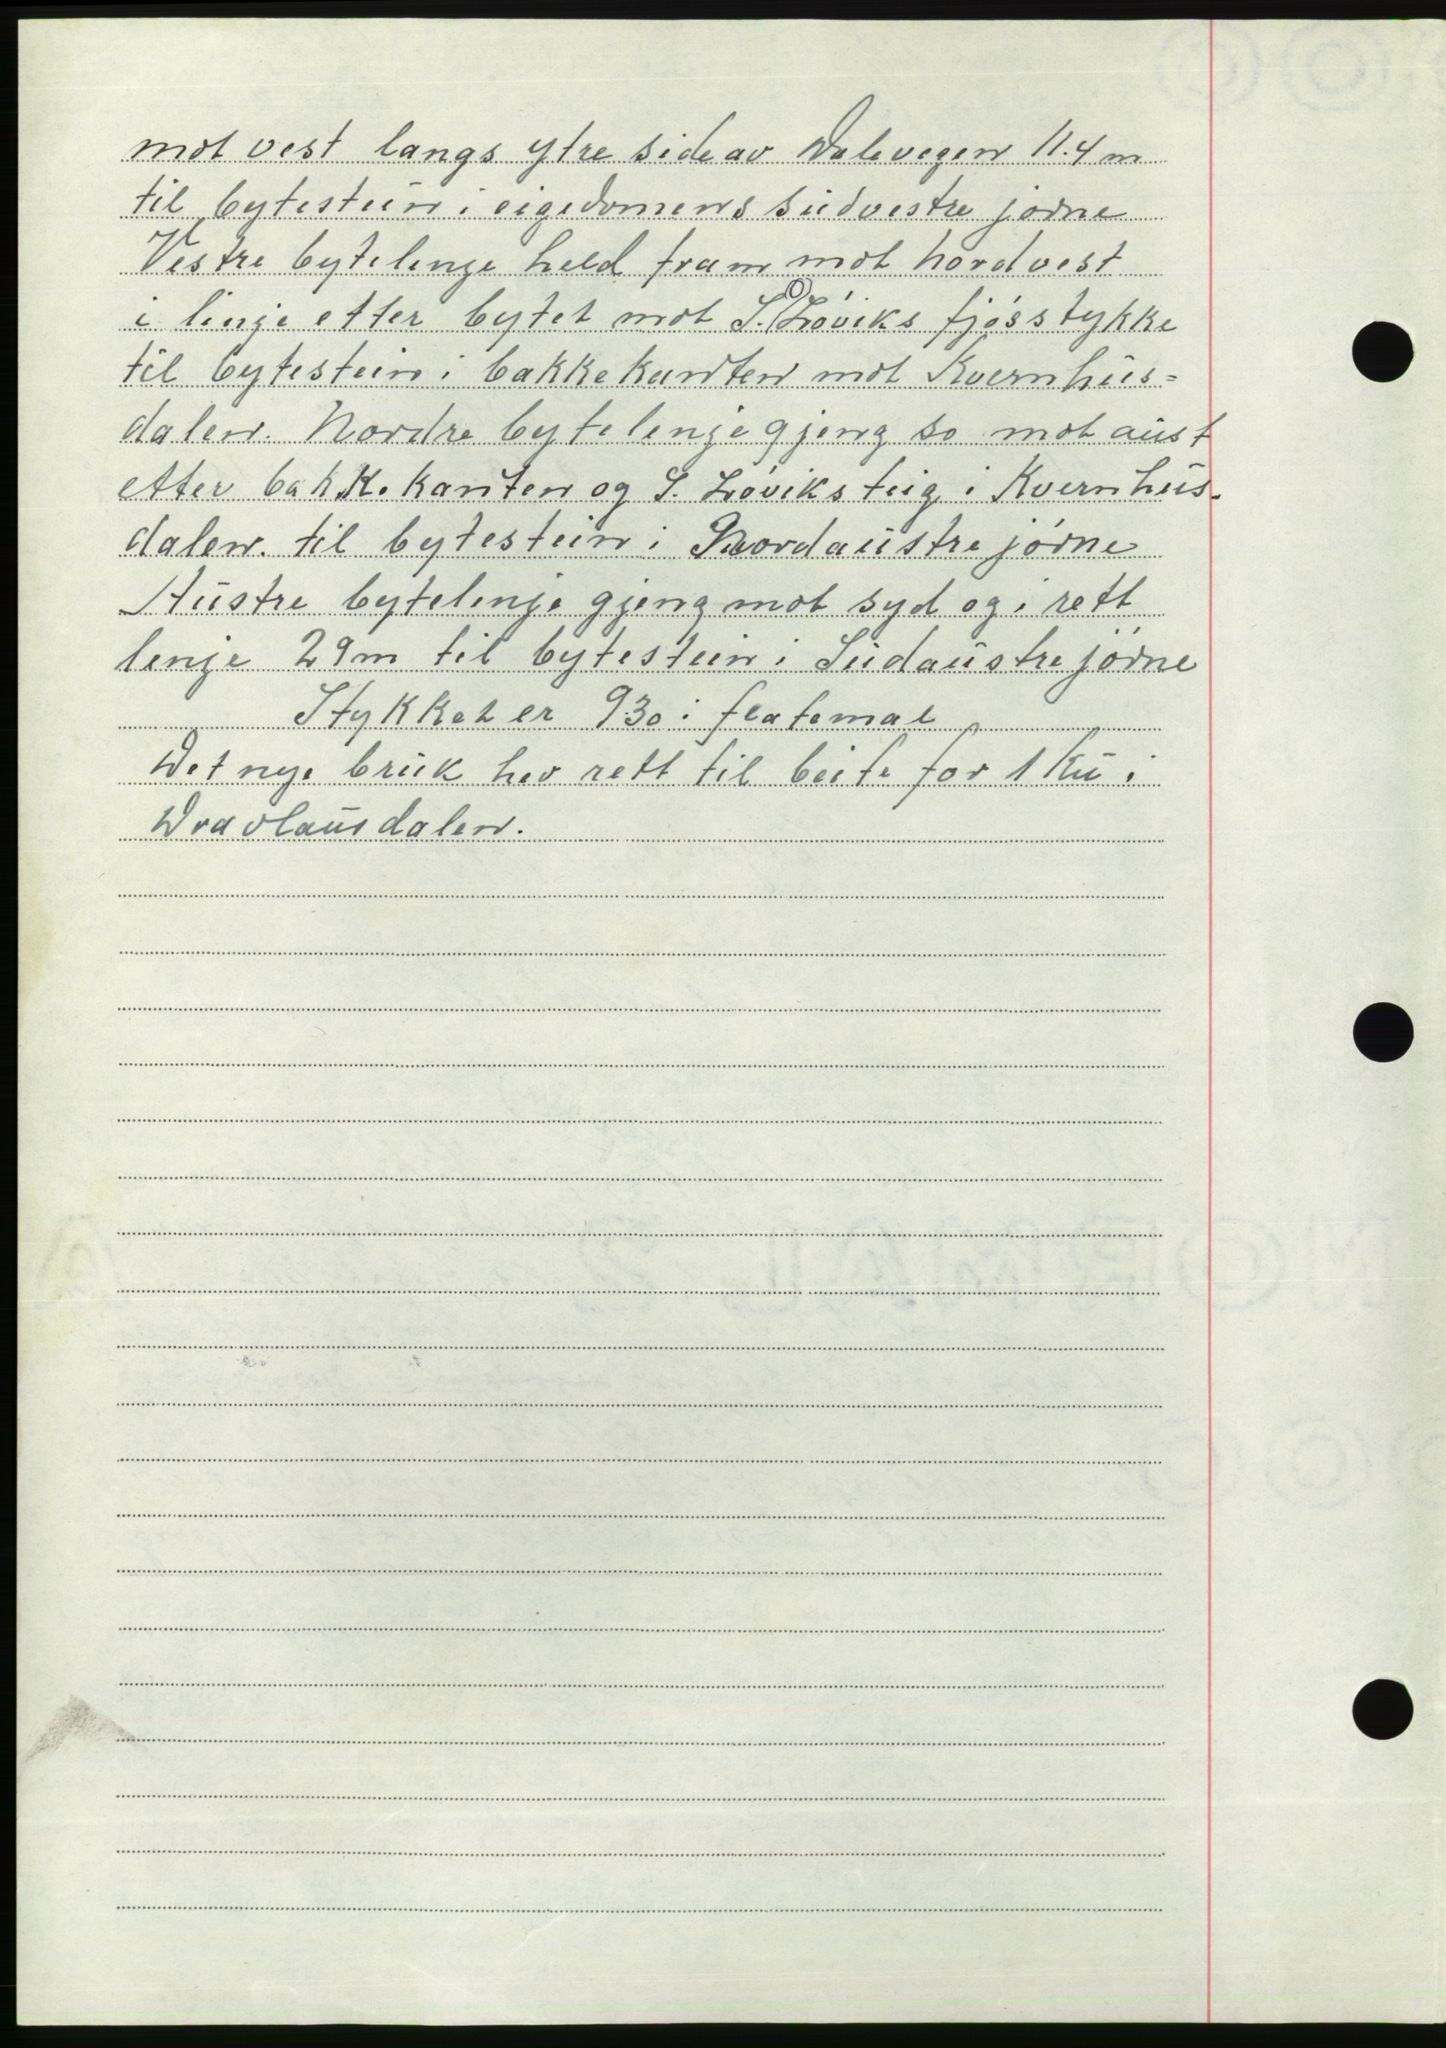 mot vest langs ytre side av Dalevegen 11.4 m
til bytestein i eigedomens südvestre jørne
Vestre bytelenje held fram mot nordvest
i linje etter bytet mot S. O Løviks fjøsstykke
til bytestein i bakkekanten mot Kvernhus=
dalen. Nordre bytelenje gjeng so mot aust
etter bakkekanten og S. Løviks teig i Kvernhus-
dalen. til bytestein i Nordaustre jørne
Austre bytelenje gjeng mot syd og i rett
lenje 29 m til bytestein i Südaustre jørne
Stykket er 930 i flatemal
Det nye bruk hev rett til beite for 1 Ku i
Dravlausdalen.